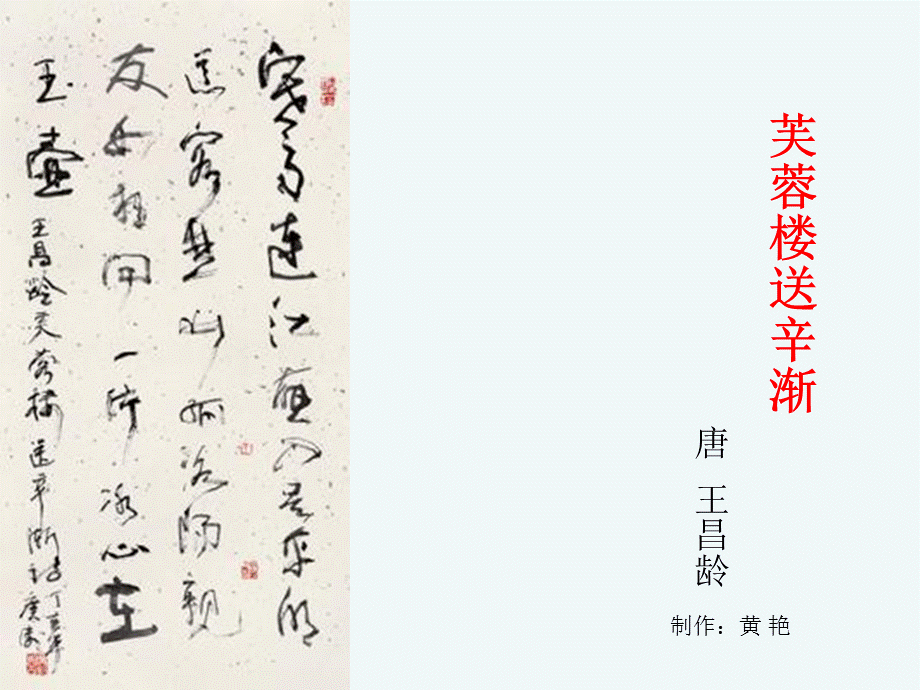 芙蓉楼送辛渐
唐 王昌龄
制作：黄 艳
寒雨連江夜入吴平明
送客楚山孤洛陽親
友如相問一片冰心在
玉壺 王昌龄芙蓉楼送辛渐诗
丁亥年